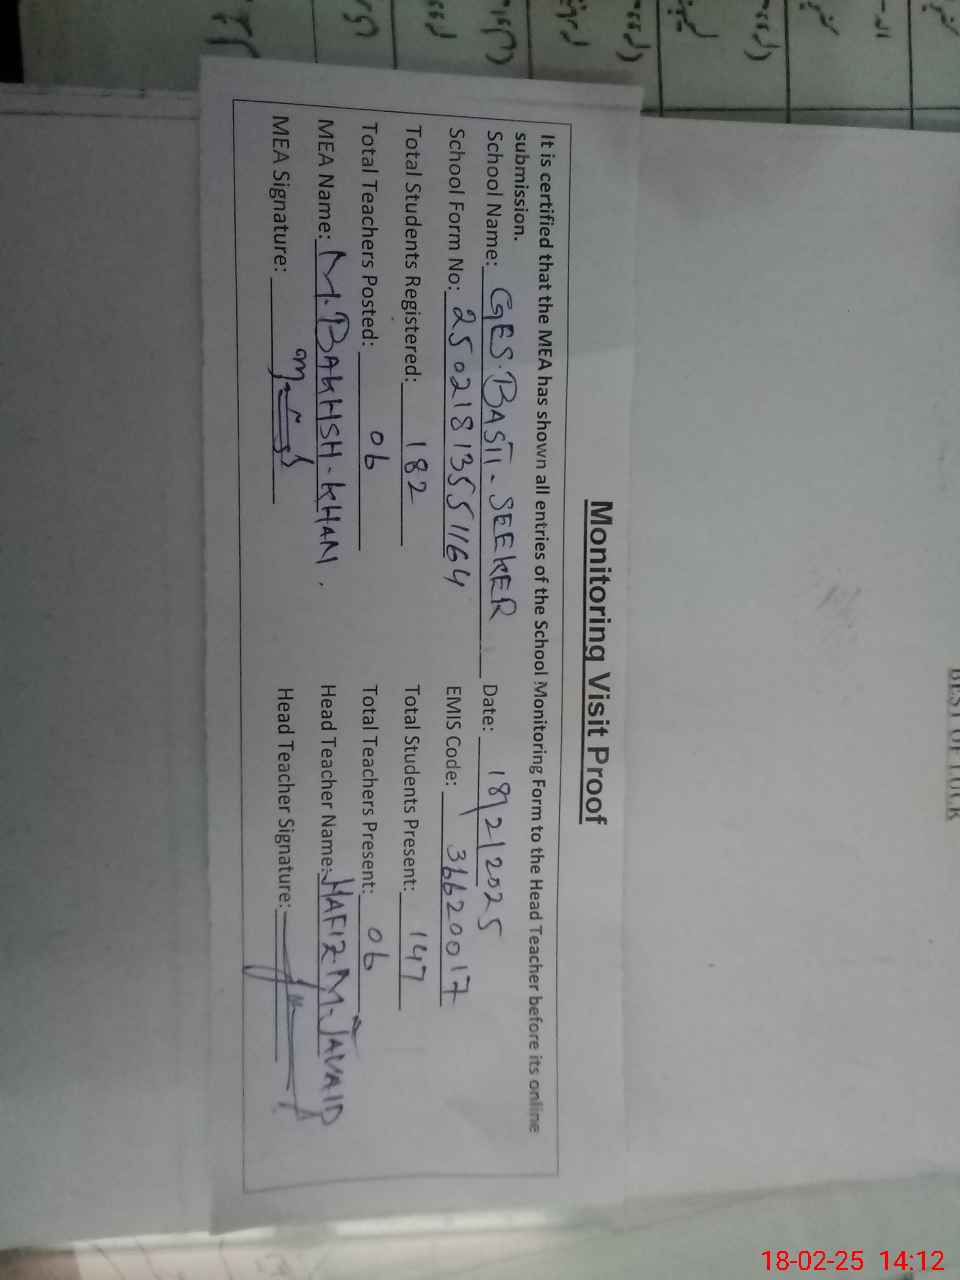 Monitoring Visit Proof
It is certified that the MEA has shown all entries of the School Monitoring Form to the Head Teacher before its online
submission.
School Name: GES. BASTI - SEEKER Date: 18/2/2025
School Form No: 25021813551164 EMIS Code: 36620017
Total Students Registered: 182 Total Students Present: 147
Total Teachers Posted: 06 Total Teachers Present: 06
MEA Name: M. BAKHSH - KHAN. Head Teacher Name: HAFIZ M. JAVAID
MEA Signature: Head Teacher Signature:
BEST OF LUCK
18-02-25 14:12